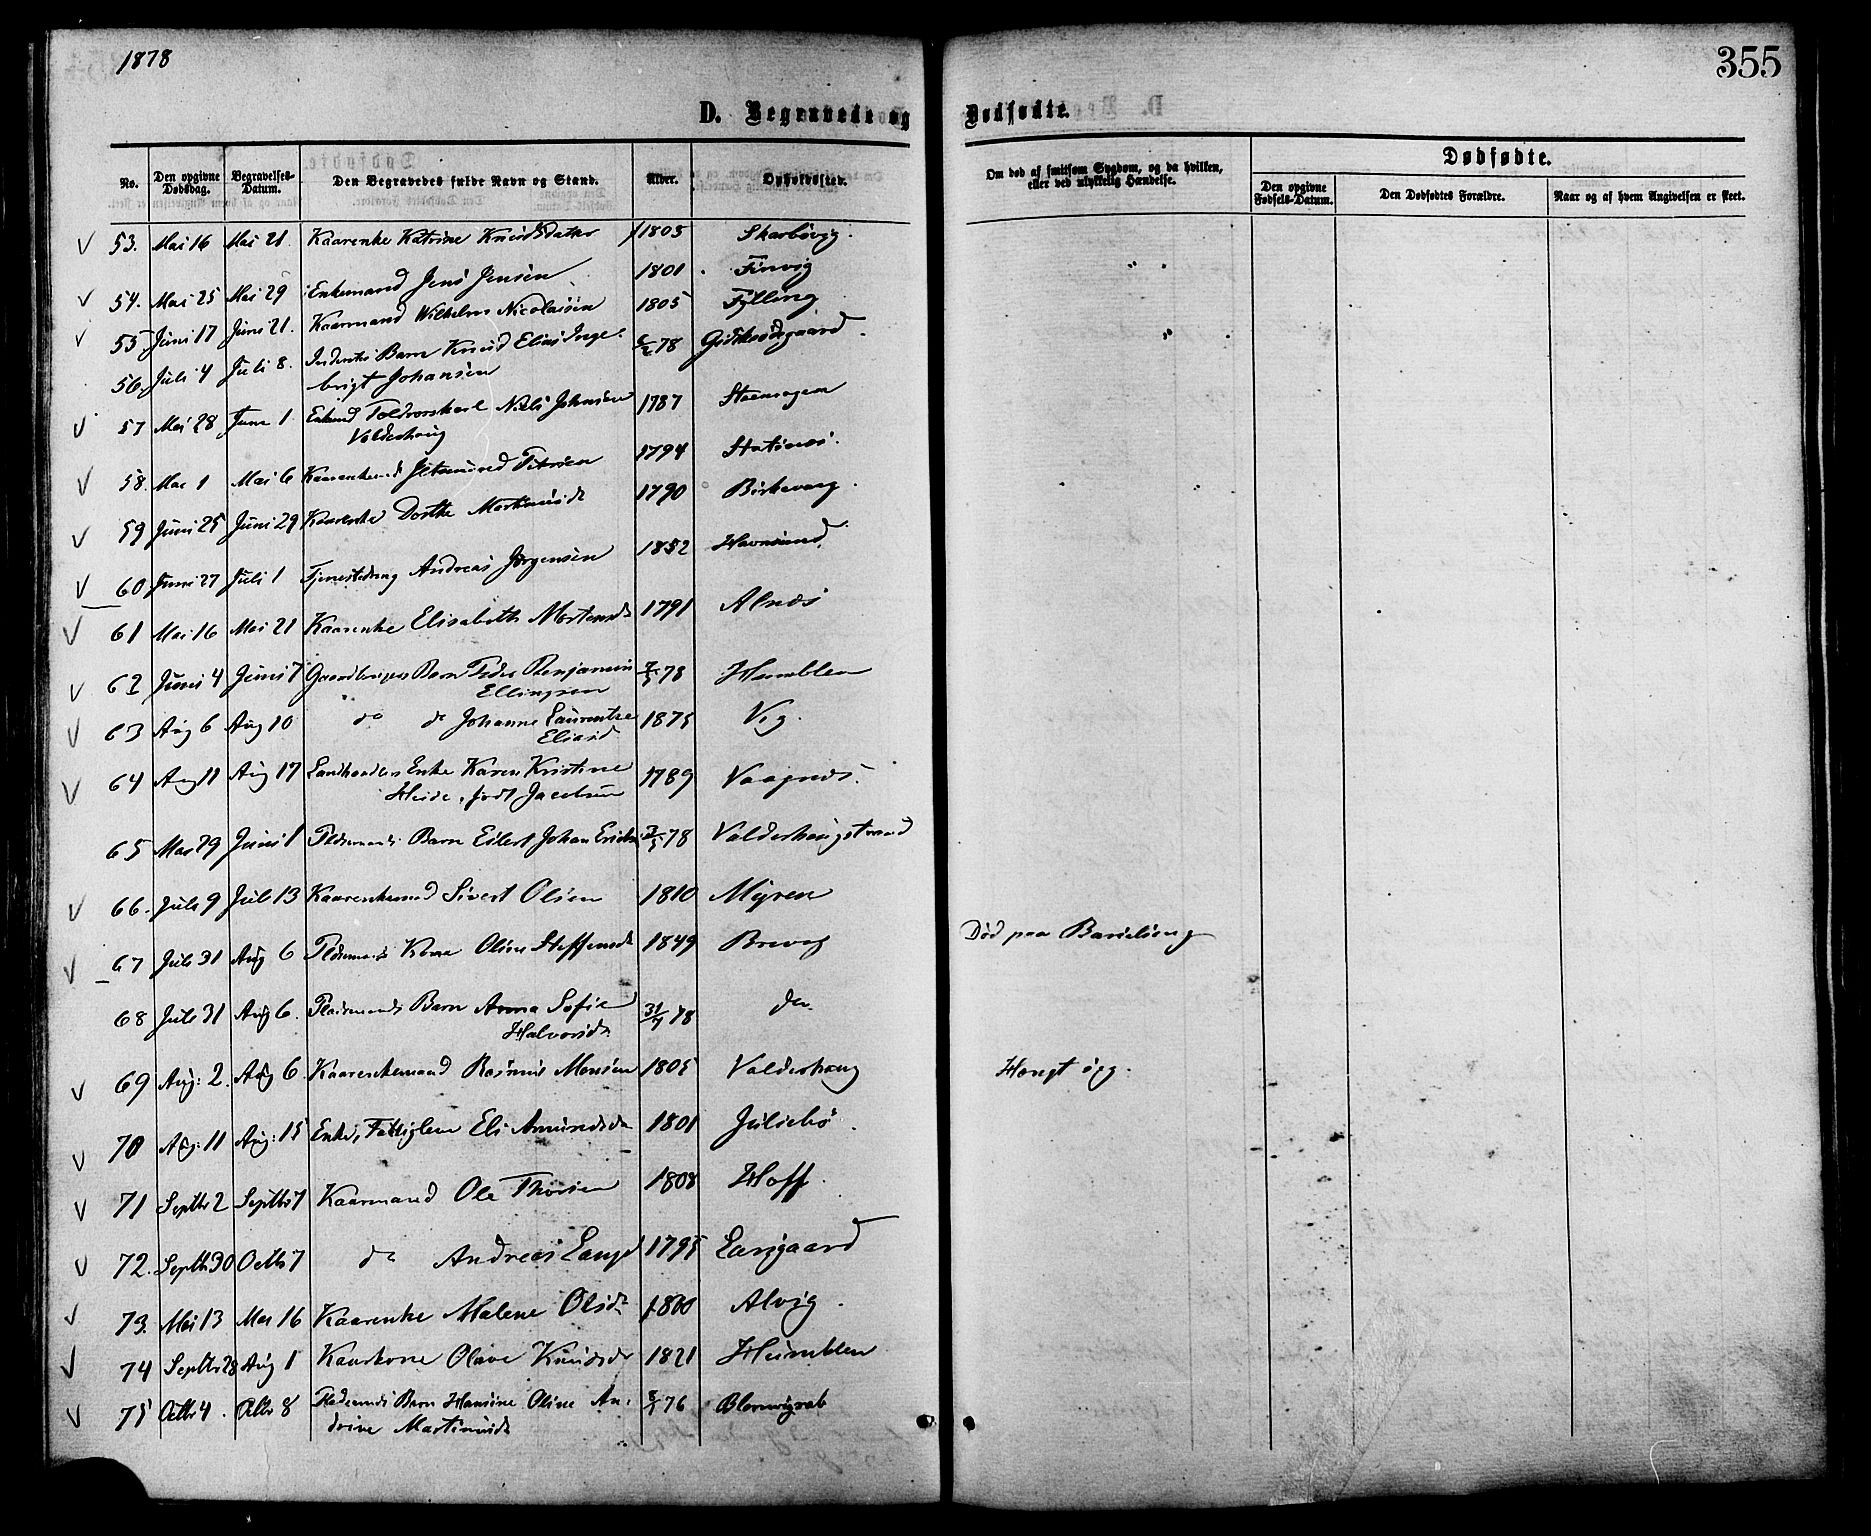 1878
355
D. Begravede og Dødfødte.
No.
Den opgivne Dødsdag.
Begravelses-Datum.
Den Begravedes fulde Navn og Stand.
Alder.
Opholdssted.
Om død af smitsom Sygdom, og da hvilken, eller ved ulykkelig Hændelse.
Dødfødte.
Den opgivne Fødsels-Datum.
Den Dødfødtes Forældre.
Naar og af hvem Angivelsen er skeet.
53. Mai 16 Mai 21. Kaarenke Katrine Knudsdatter 1805 Skarbövig.
54. Mai 25 Mai 29 Enkemand Jens Jensen 1801
55 Juni 17 Juni 21. Kaarmand Wilhelm Nicolaisen 1805 Fylling
56. Juli 4 Juli 8. Barn Knud Elias Inge- 78
brigt Johansen
57 Mai 28 Juni 1 Niels Johnsen 1787
Valderhaug
58. Mai 1 Mai 6 1794
59 Juni 25 Juni 29 Kaarenke Dorthe Martinusd 1790
60 Juni 27 Juli 1 Tjenestedreng Andreas Jørgensen 1852
61 Mai 16 Mai 21 Kaarenke Elisabeth 1791 Alnæs
62 Juni 4 Juni 7 Barn Peder Benjamin 78 Humblen
Ellingsen
63 Aug 6 Aug 10 do do Johanne Laurentze 1875 Vig.
Eliasd
64 Aug 11 Aug 17 Landhandlers Enke Karen Kristine 1789 Vaagnæs.
Heide, født Jacobsen
65 Mai 29 Juni 1 Barn Eilert Johan 78 Valderhaugstrand
66. Juli 9 Juli 13 Kaarenkemand Sivert Olsen 1810 Myren
67 Juli 31 Aug 6 Kone Oline Steffensd 1849 Død paa Barselseng
68 Juli 31 Aug 6. Barn Anna Sofie 31/7 78 do
Halvorsd
69 Aug: 2. Aug 6. Kaarenkemand Rasmus Monsen 1805 Valderhaug Hængt sig.
70 Aug: 11 Aug: 15 Enke, Fattiglem Eli Amundsd 1801 Juliebö.
71 Septbr 2 Septbr 7 Kaarmand Ole Thorsen 1808 Hoff.
72. Septbr 30 Octbr 7 do Andreas Lange 1795
73. Mai 13 Mai 16 Kaarenke Malene Olsd 1800 Alvig.
74 Septbr 28 Aug 1 Kaarkone Olave Knudsd 1821 Humblen
75 Octbr 4. Octbr 8 Barn Hansine Oline An- 76
drine Martinusd